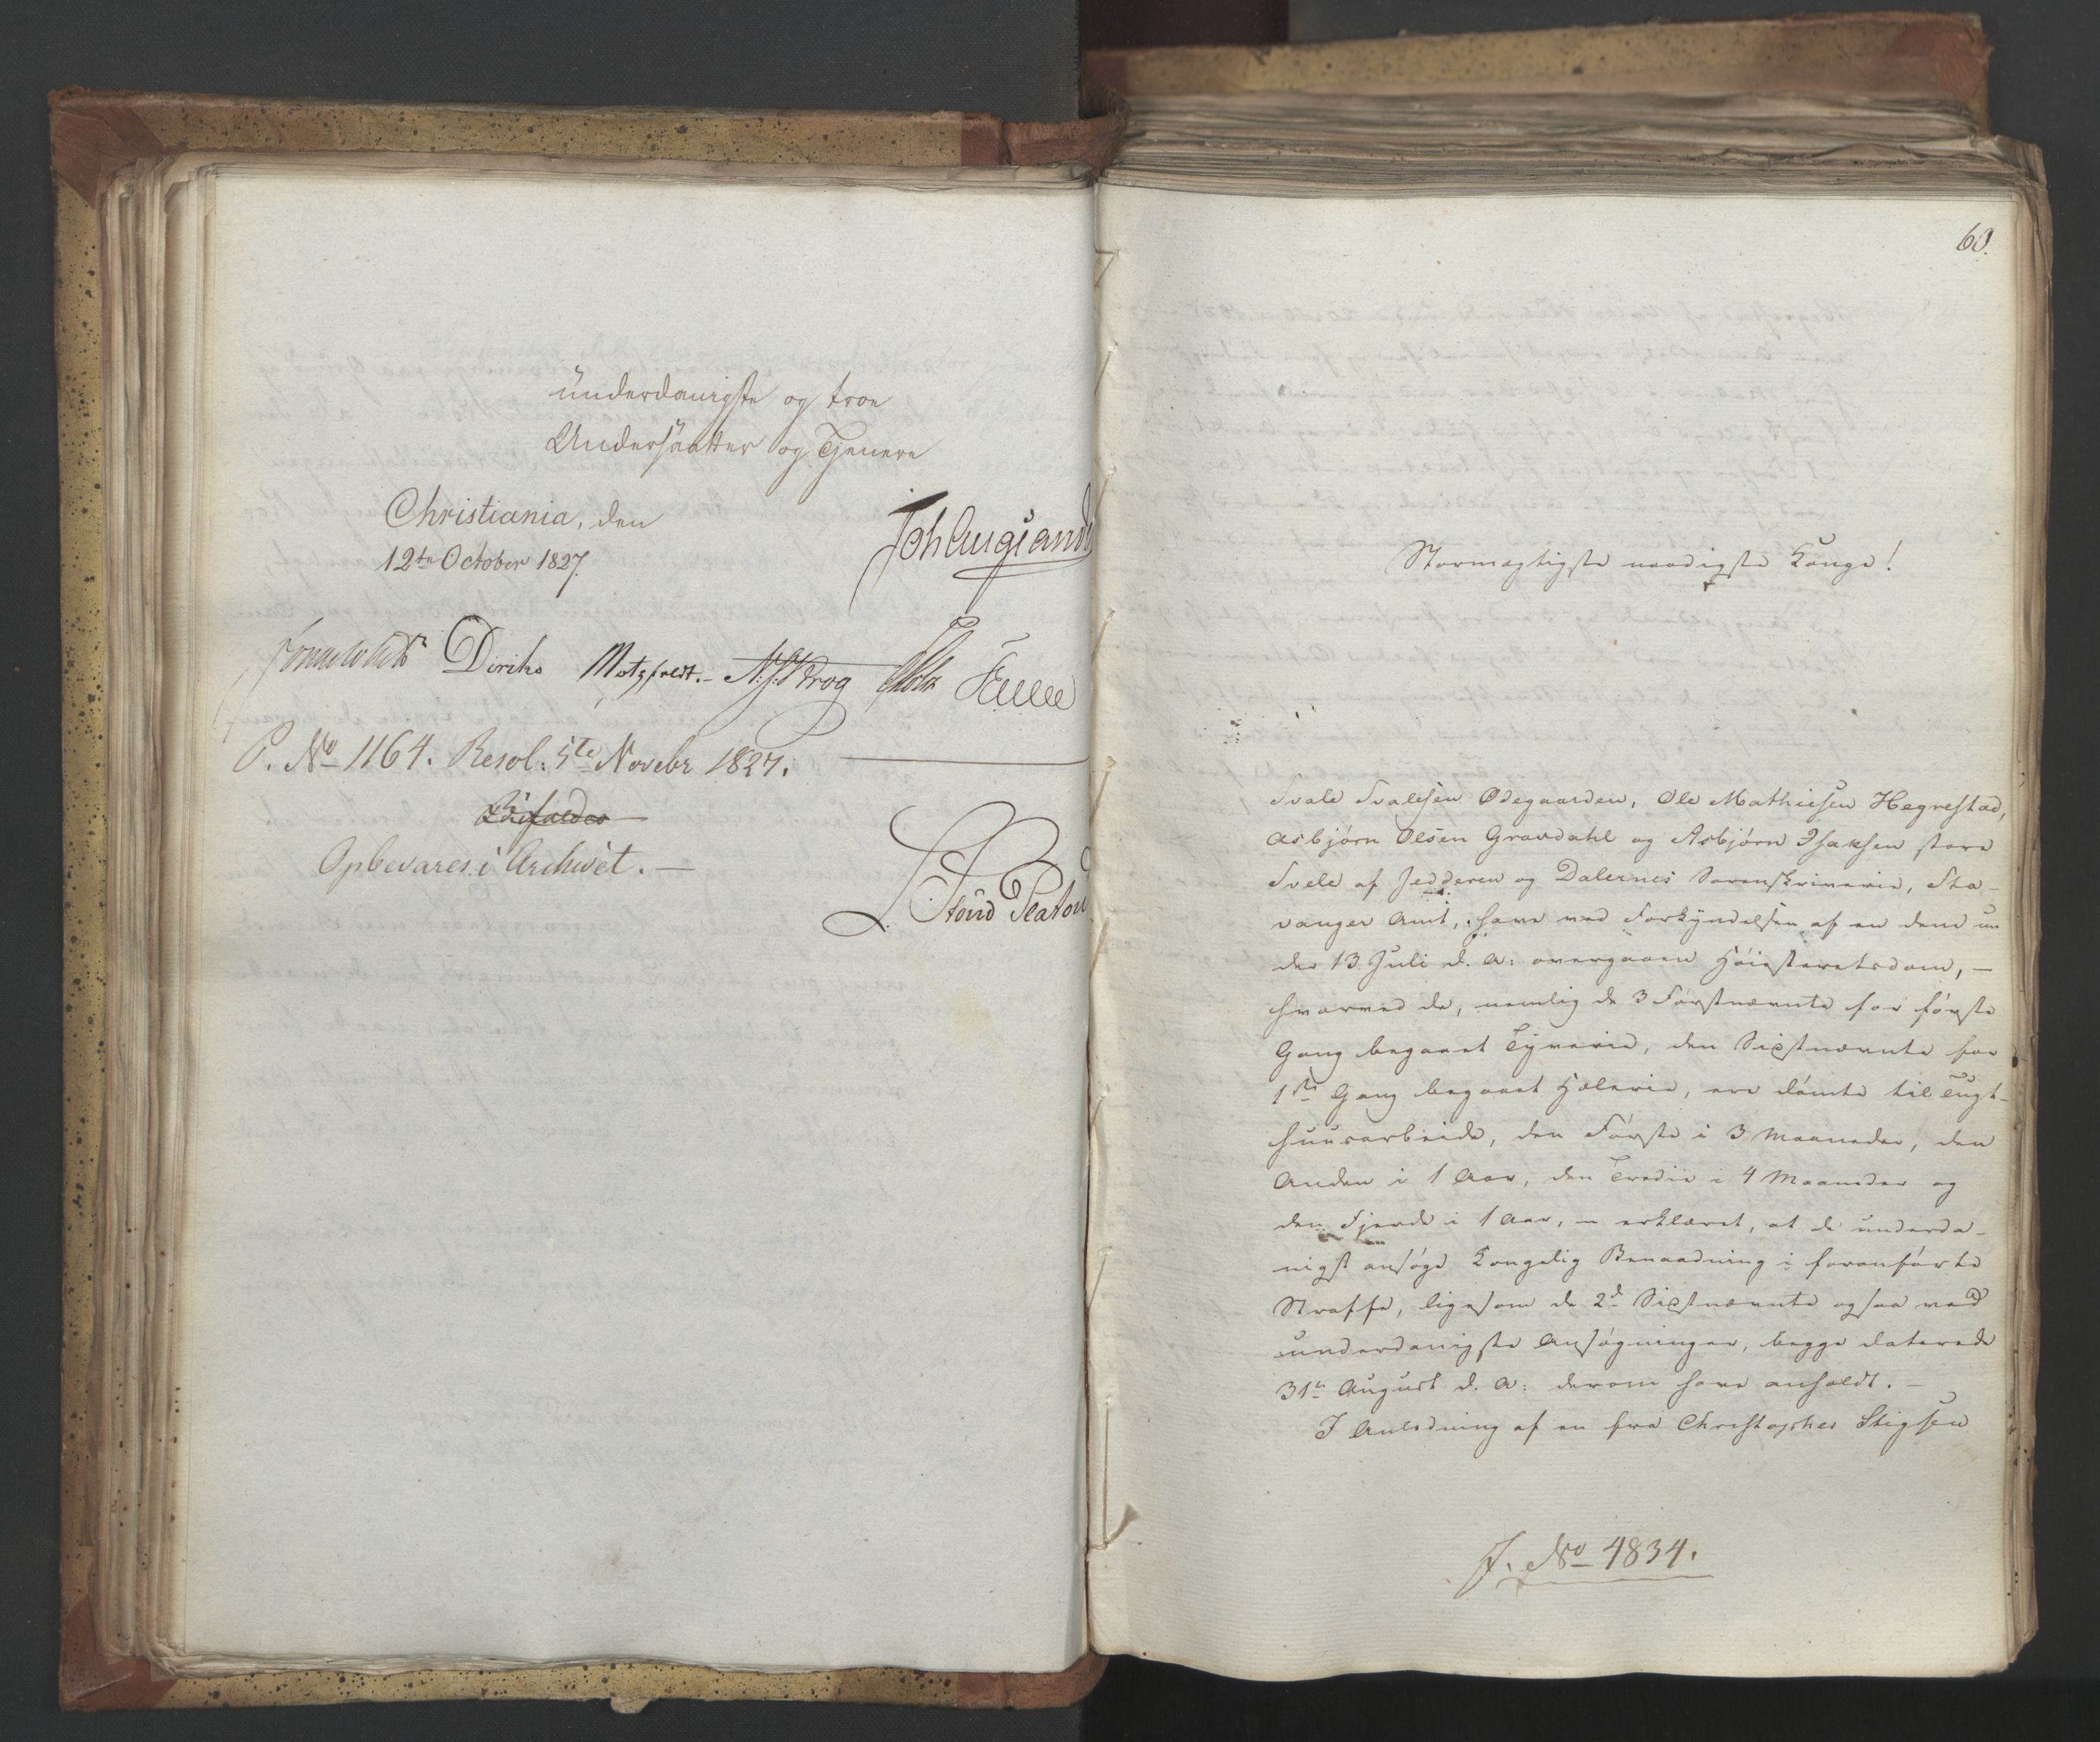 underdanigste og troe
Undersaatter og Tjenere
Christiania, den
12te October 1827.
Diriks Motzfeldt. N. J. Krog
P. No 1164. Resol: 5te Novebr 1827.
Bifaldes
Opbevares i Archivet. —
60.
Stormægtigste naadigste Konge!
Svale Svalesen Ødegaarden, Ole Mathiesen Hegrestad,
Asbjørn Olsen Gravdahl og Asbjørn Isaksen store
Svele af Jedderen og Dalernes Sorenskriverie, Sta-
vanger Amt, have ved Forkyndelsen af en dem un
der 13 Juli d. A: overgaaen Høiesteretsdom, —
hvorved de, nemlig de 3 Førstnævnte for første
Gang begaaet Tyverie, den Sidstnævnte for
1ste Gang begaaet Hæleri, ere dømte til Tugt-
huusarbeide, den Første i 3 Maaneder, den
Anden i 1 Aar, den Tredie i 4 Maaneder og
den Fjerde i 1 Aar, — erklæret, at de underda-
nigst ansøge Kongelig Benaadning i foranførte
Straffe, ligesom de 2de Sidstnævnte ogsaa ved
underdanigste Ansøgninger, begge daterede
31te August d. A: derom have anholdt. —
I Anledning af en fra Christopher Stigsen
J. No 4834.